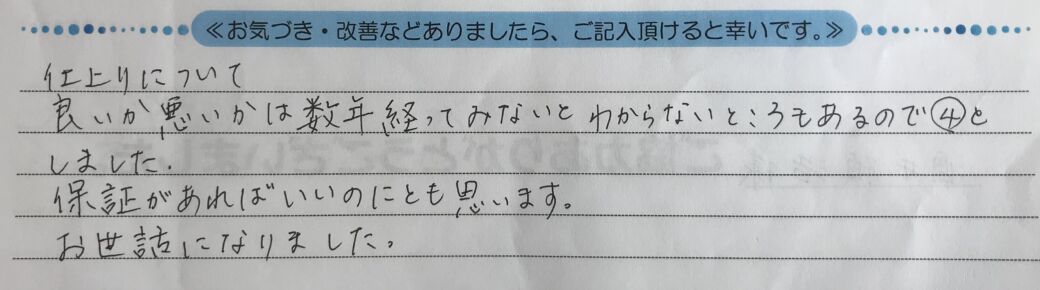 ≪お気づき・改善などありましたら、ご記入頂けると幸いです。≫
仕上りについて
良いか悪いかは数年経ってみないとわからないところもあるので④と
しました.
保証があればいいのにとも思います。
お世話になりました。